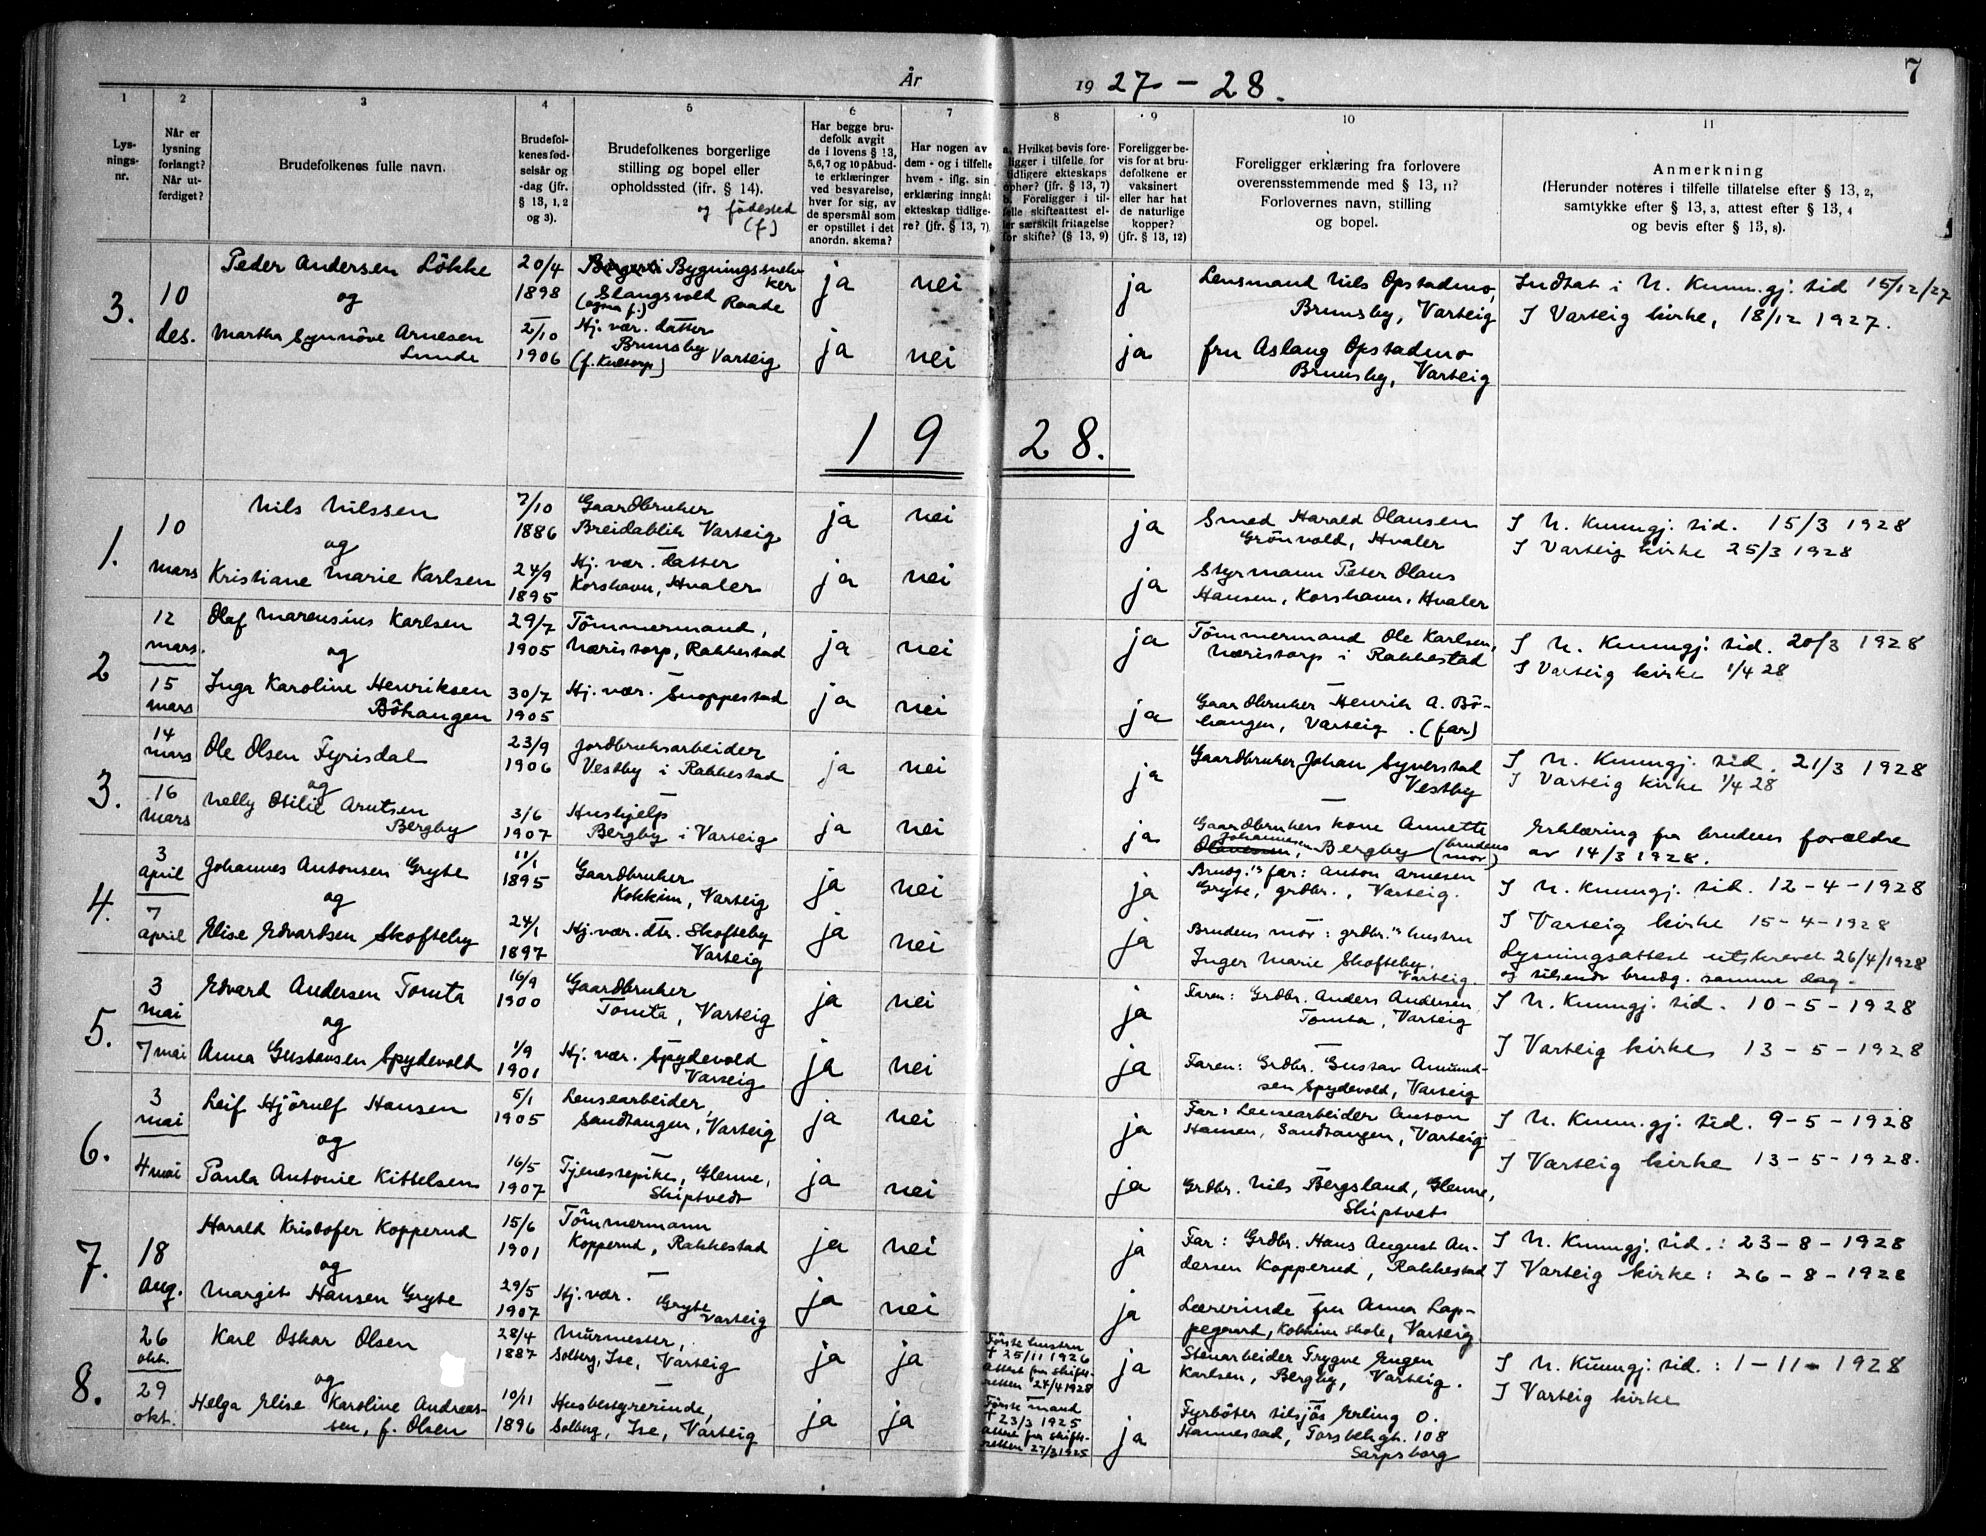 År 1927 - 28.
7
1 2 3 4 5 6 7 8 9 10 11
Lys-
nings-
nr.
Når er
lysning
forlangt?
Når ut-
ferdiget?
Brudefolkenes fulle navn.
Brudefol-
kenes fød-
selsår og
-dag (jfr.
§ 13, 1, 2
og 3).
Brudefolkenes borgerlige
stilling og bopel eller
opholdssted (jfr. § 14).
og födested
(f)
Har begge bru-
defolk avgit
de i lovens § 13,
5, 6, 7 og 10 påbud-
te erklæringer
ved besvarelse,
hver for sig, av
de spørsmål som
er opstillet i det
anordn. skema?
Har nogen av
dem - og i tilfelle
hvem - iflg. sin
erklæring inngått
ekteskap tidlige-
re? (jfr. § 13, 7)
a. Hvilket bevis fore-
ligger i tilfelle for
tidligere ekteskaps
ophør? (jfr. § 13, 7)
b. Foreligger i til-
felle skifteattest el-
ler særskilt fritagelse
for skifte? (§ 13, 9)
Foreligger be-
vis for at bru-
defolkene er
vaksinert
eller har hat
de naturlige
kopper?
(jfr. § 13, 12)
Foreligger erklæring fra forlovere
overensstemmende med § 13, 11?
Forlovernes navn, stilling
og bopel.
Anmerkning
(Herunder noteres i tilfelle tillatelse efter § 13, 2,
samtykke efter § 13, 3, attest efter § 13, 4
og bevis efter § 13, 8).
3.
10
des.
Peder Andersen Lökke
og
Martha Synnöve Arnesen
Lunde
20/4
1898
2/10
1906
Bygningssnek
ker
Slangsvold Raade
(ogsaa f.)
Hj. vær. datter
Brunsby
(f. Kultorp) Varteig
ja nei
ja nei
ja
ja
Lensmand Nils Opstadmo,
Brunsby, Varteig
fru Aslaug Opstadmo
Brunsby, Varteig
Indtat i N. Kunn.gj. tid 15/12/27
I Varteig kirke, 18/12 1927.
1928.
1.
10
mars
Nils Nilssen
og
Kristiane Marie Karlsen
7/10
1886
24/9
1895
Gaardbruker
Breidablik Varteig
Hj. vær. datter
Korshavn, Hvaler
ja nei
ja nei
ja
ja
Smed Harald Olausen
Grönvold, Hvaler
Styrmann Peter Olaus
Hansen, Korshavn, Hvaler
I N. Kunngj. tid. 15/3 1928
I Varteig kirke 25/3 1928
2
12
mars.
15
mars
Olaf Marensius Karlsen
og
Inga Karoline Henriksen
Böhaugen
29/7
1905
30/7
1905
Tömmermand,
Næristorp, Rakkestad
Hj. vær. Snoppestad
ja nei
ja nei
ja
ja
Tömmermand Ole Karlsen,
Næristorp i Rakkestad
Gaardbruker Henrik A. Bö-
haugen, Varteig. (far)
I N. Kunngj. tid. 20/3 1928
I Varteig kirke 1/4 28
3.
14
mars
16
mars
Ole Olsen Fyrisdal
og
Nelly Otilie Arntsen
Bergby
23/9
1906
3/6
1907
Jordbruksarbeider
Vestby i Rakkestad
Hushjelp
Bergby i Varteig
ja nei
ja nei
ja
ja
Gaardbruker Johan Syverstad
Vestby
Gaardbrukers kone Annette
Johannesen
Olavesen, Bergby (brudens
mor)
I N. Kunngj. tid. 21/3 1928
I Varteig kirke 1/4 28
Erklæring fra brudens forældre
av 14/3 1928.
4.
3
april
7
april
Johannes Antonsen Gryte
og
Elise Edvardsen Skofteby
11/1
1895
24/1
1897
Gaardbruker
Kokkim, Varteig
Hj. vær. dtr. Skofteby
Varteig
ja nei
ja nei
ja
ja
Brudg.'s far: Anton Arnesen
Gryte, grdbr., Varteig.
Brudens mor: grdbr.'s hustru
Inger Marie Skofteby.
Varteig.
I N. Kunngj. tid. 12-4-1928
I Varteig kirke 15-4-1928
Lysningsattest utskrevet 26/4/1928
og tilsendt brudg. samme dag.
5.
3
mai
7 mai
Edvard Andersen Tomta
og
Anna Gustavsen Spydevold
16/9
1900
1/9
1901
Gaardbruker
Tomta, Varteig
Hj. vær. Spydevold
Varteig
ja nei
ja nei
ja
ja
Faren: Grdbr. Anders Andersen
Tomta, Varteig
Faren: Grdbr. Gustav Amund-
sen Spydevold, Varteig
I N. Kunngj. tid. 10-5-1928
I Varteig kirke 13-5-1928
6.
3
mai
4 mai
Leif Hjörulf Hansen
og
Paula Antonie Kittelsen
5/1
1905
16/5
1907
Lensearbeider,
Sandtangen, Varteig
Tjenestepike, Glenne,
Skiptvedt
ja nei
ja nei
ja
ja
Far: Lensearbeider Anton
Hansen, Sandtangen, Varteig
Grdbr. Nils Bergsland, Glenne,
Skiptvet
I N. Kunn.gj. tid. 9-5-1928
I Varteig kirke 13-5-1928.
7.
18
aug.
Harald Kristofer Kopperud
og
Margit Hansen Gryte
15/6
1901
29/5
1907
Tömmermann
Kopperud, Rakkestad
Hj. vær. Gryte
Varteig
ja nei
ja nei
ja
ja
Far: Grdbr. Hans August An-
dersen Kopperud, Rakkestad
Lærerinde fru Anna Lap-
pegaard, Kokkim skole, Varteig
I N. Kunngj. tid.: 23-8-1928
I Varteig kirke: 26-8-1928
8.
26
okt.
29
okt.
Karl Oskar Olsen
og
Helga Elise Karoline Andreas-
sen, f. Olsen
28/4
1887
10/11
1896
Murmester,
Solberg, Ise, Varteig
Husbestyrerinde,
Solberg, Ise, Varteig
ja ja
ja ja
Förste hustru
† 25/11 1926
attest fra skifte-
retten 24/4 1928
Förste mand
† 23/3 1925
attest fra skifte-
retten 27/3 1925
ja
ja
Stenarbeider Trygve Engen
Karlsen, Bergby, Varteig.
Fyrböter tilsjös Erling O.
Hannestad, Torsbekgt. 108
Sarpsborg
I N. Kunngj. tid.: 1-11-1928
I Varteig kirke